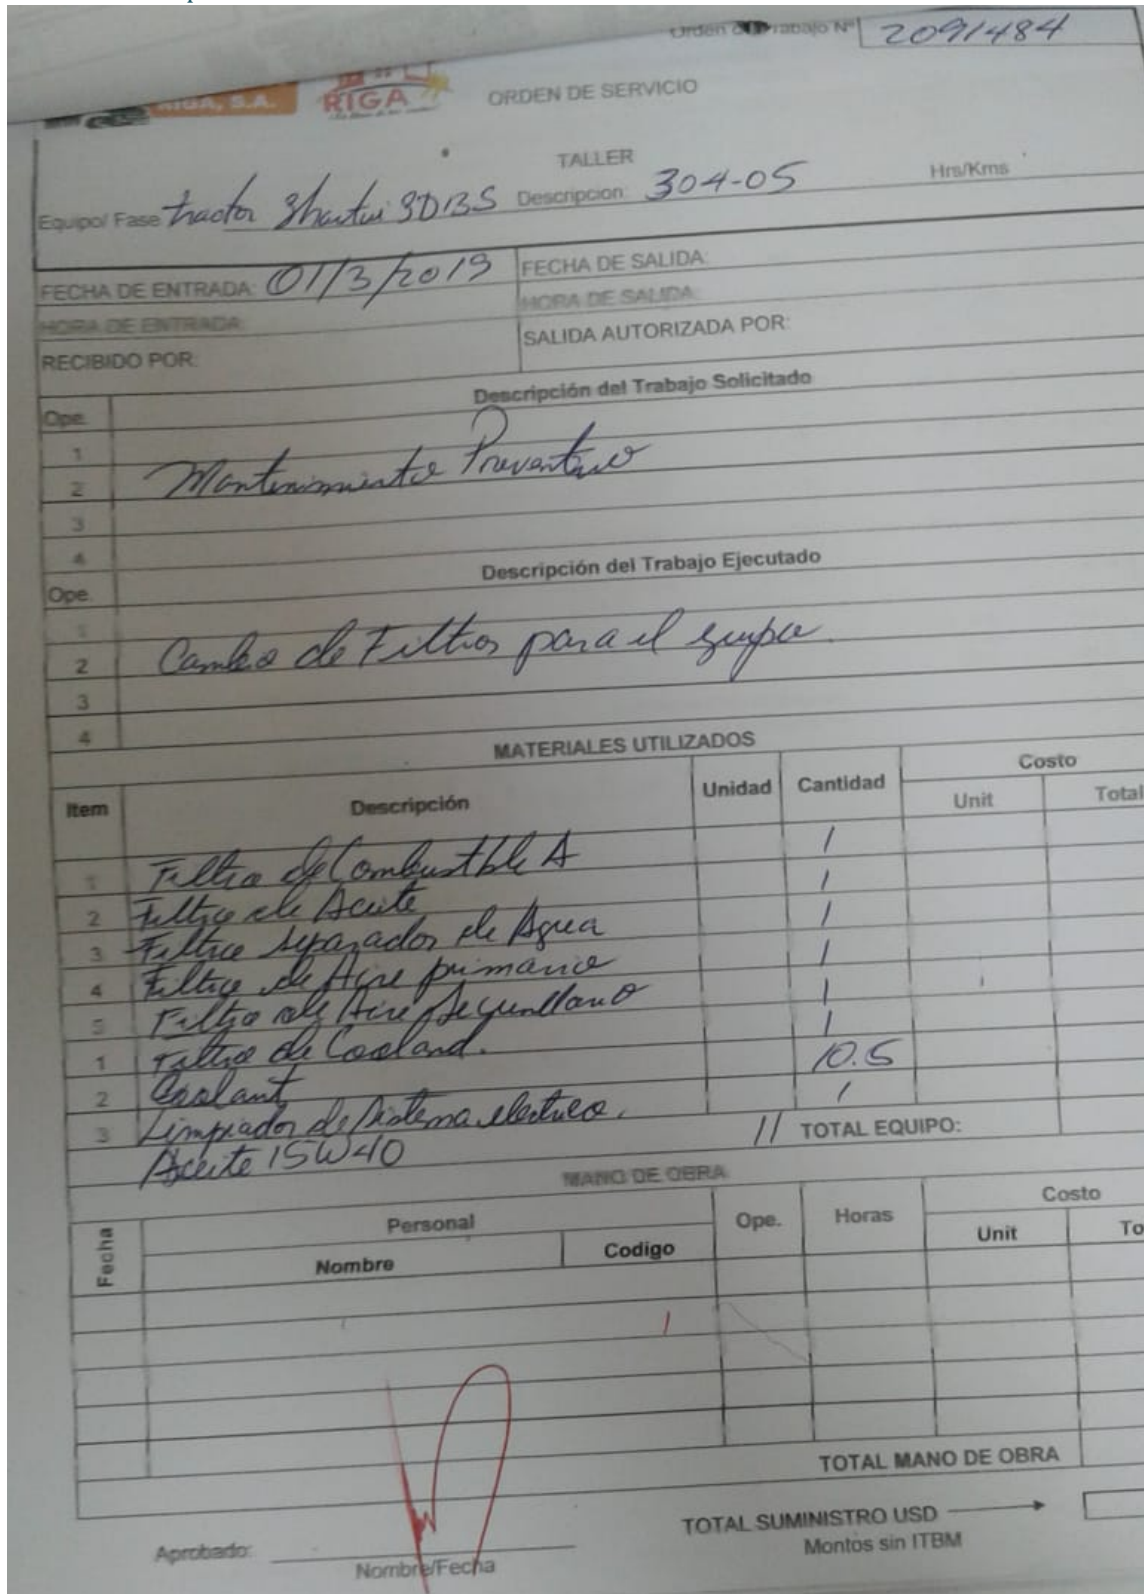 Orden de Trabajo Nº 2091484
RIGA, S.A. RIGA ORDEN DE SERVICIO
TALLER
Equipo/ Fase tractor Shantui SD13S Descripcion: 304-05 Hrs/Kms
FECHA DE ENTRADA: 01/3/2019 FECHA DE SALIDA:
HORA DE ENTRADA: HORA DE SALIDA:
RECIBIDO POR: SALIDA AUTORIZADA POR:
Descripción del Trabajo Solicitado
Ope.
1
2 Mantenimiento Preventivo
3
4
Descripción del Trabajo Ejecutado
Ope.
1
2 Cambio de Filtros para el equipo.
3
4
MATERIALES UTILIZADOS
Item Descripción Unidad Cantidad Costo
Unit Total
1 Filtro de Combustible A 1
2 Filtro de Aceite 1
3 Filtro separador de Agua 1
4 Filtro de Aire primario 1
5 Filtro de Aire Secundario 1
1 Filtro de Cooland. 1
2 Coolant 10.5
3 Limpiador de Sistema electrico. 1
Aceite 15W40 11 TOTAL EQUIPO:
MANO DE OBRA
Fecha Personal Ope. Horas Costo
Nombre Codigo Unit To
TOTAL MANO DE OBRA
TOTAL SUMINISTRO USD
Montos sin ITBM
Aprobado:
Nombre/Fecha